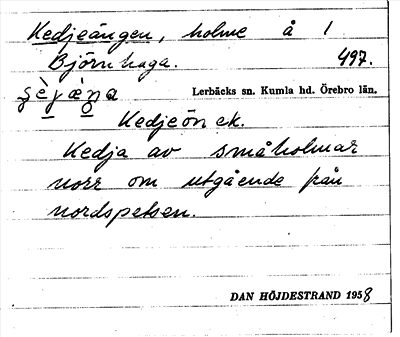 Kedjeängen, holme å 1
Björnhaga. 497.
Lerbäcks sn. Kumla hd. Örebro län.
Kedjeön ek.
Kedja av småholmar
norr om utgående från
nordspetsen.
DAN HÖJDESTRAND 1958